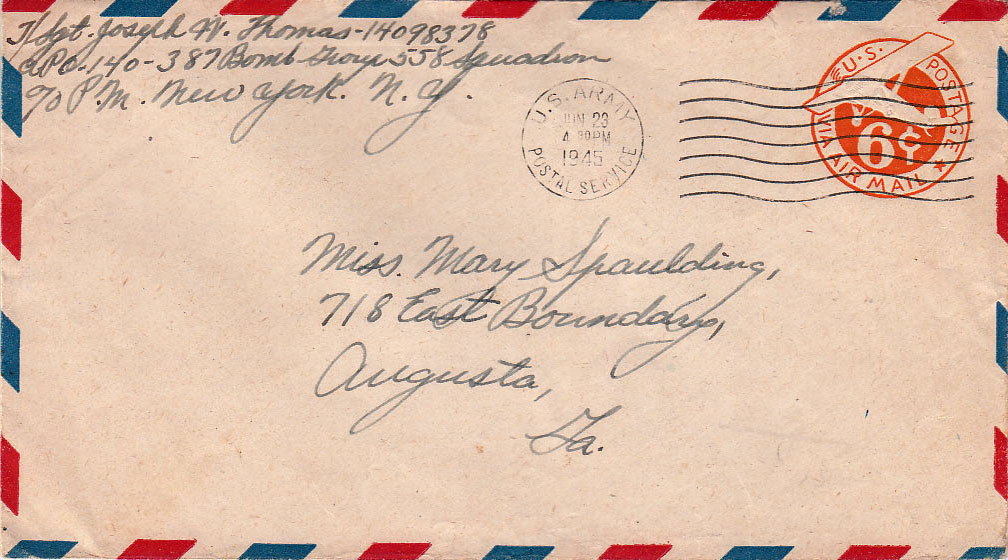 T/Sgt. Joseph W. Thomas-14098378
APO-140-387 Bomb Group 558 Squadron
c/o P.M. New York. N.Y.
U.S. ARMY
JUN 23
4 30 PM
1945
POSTAL SERVICE
U.S. POSTAGE
6¢
VIA AIR MAIL
Miss. Mary Spaulding,
718 East Boundary,
Augusta,
Ga.